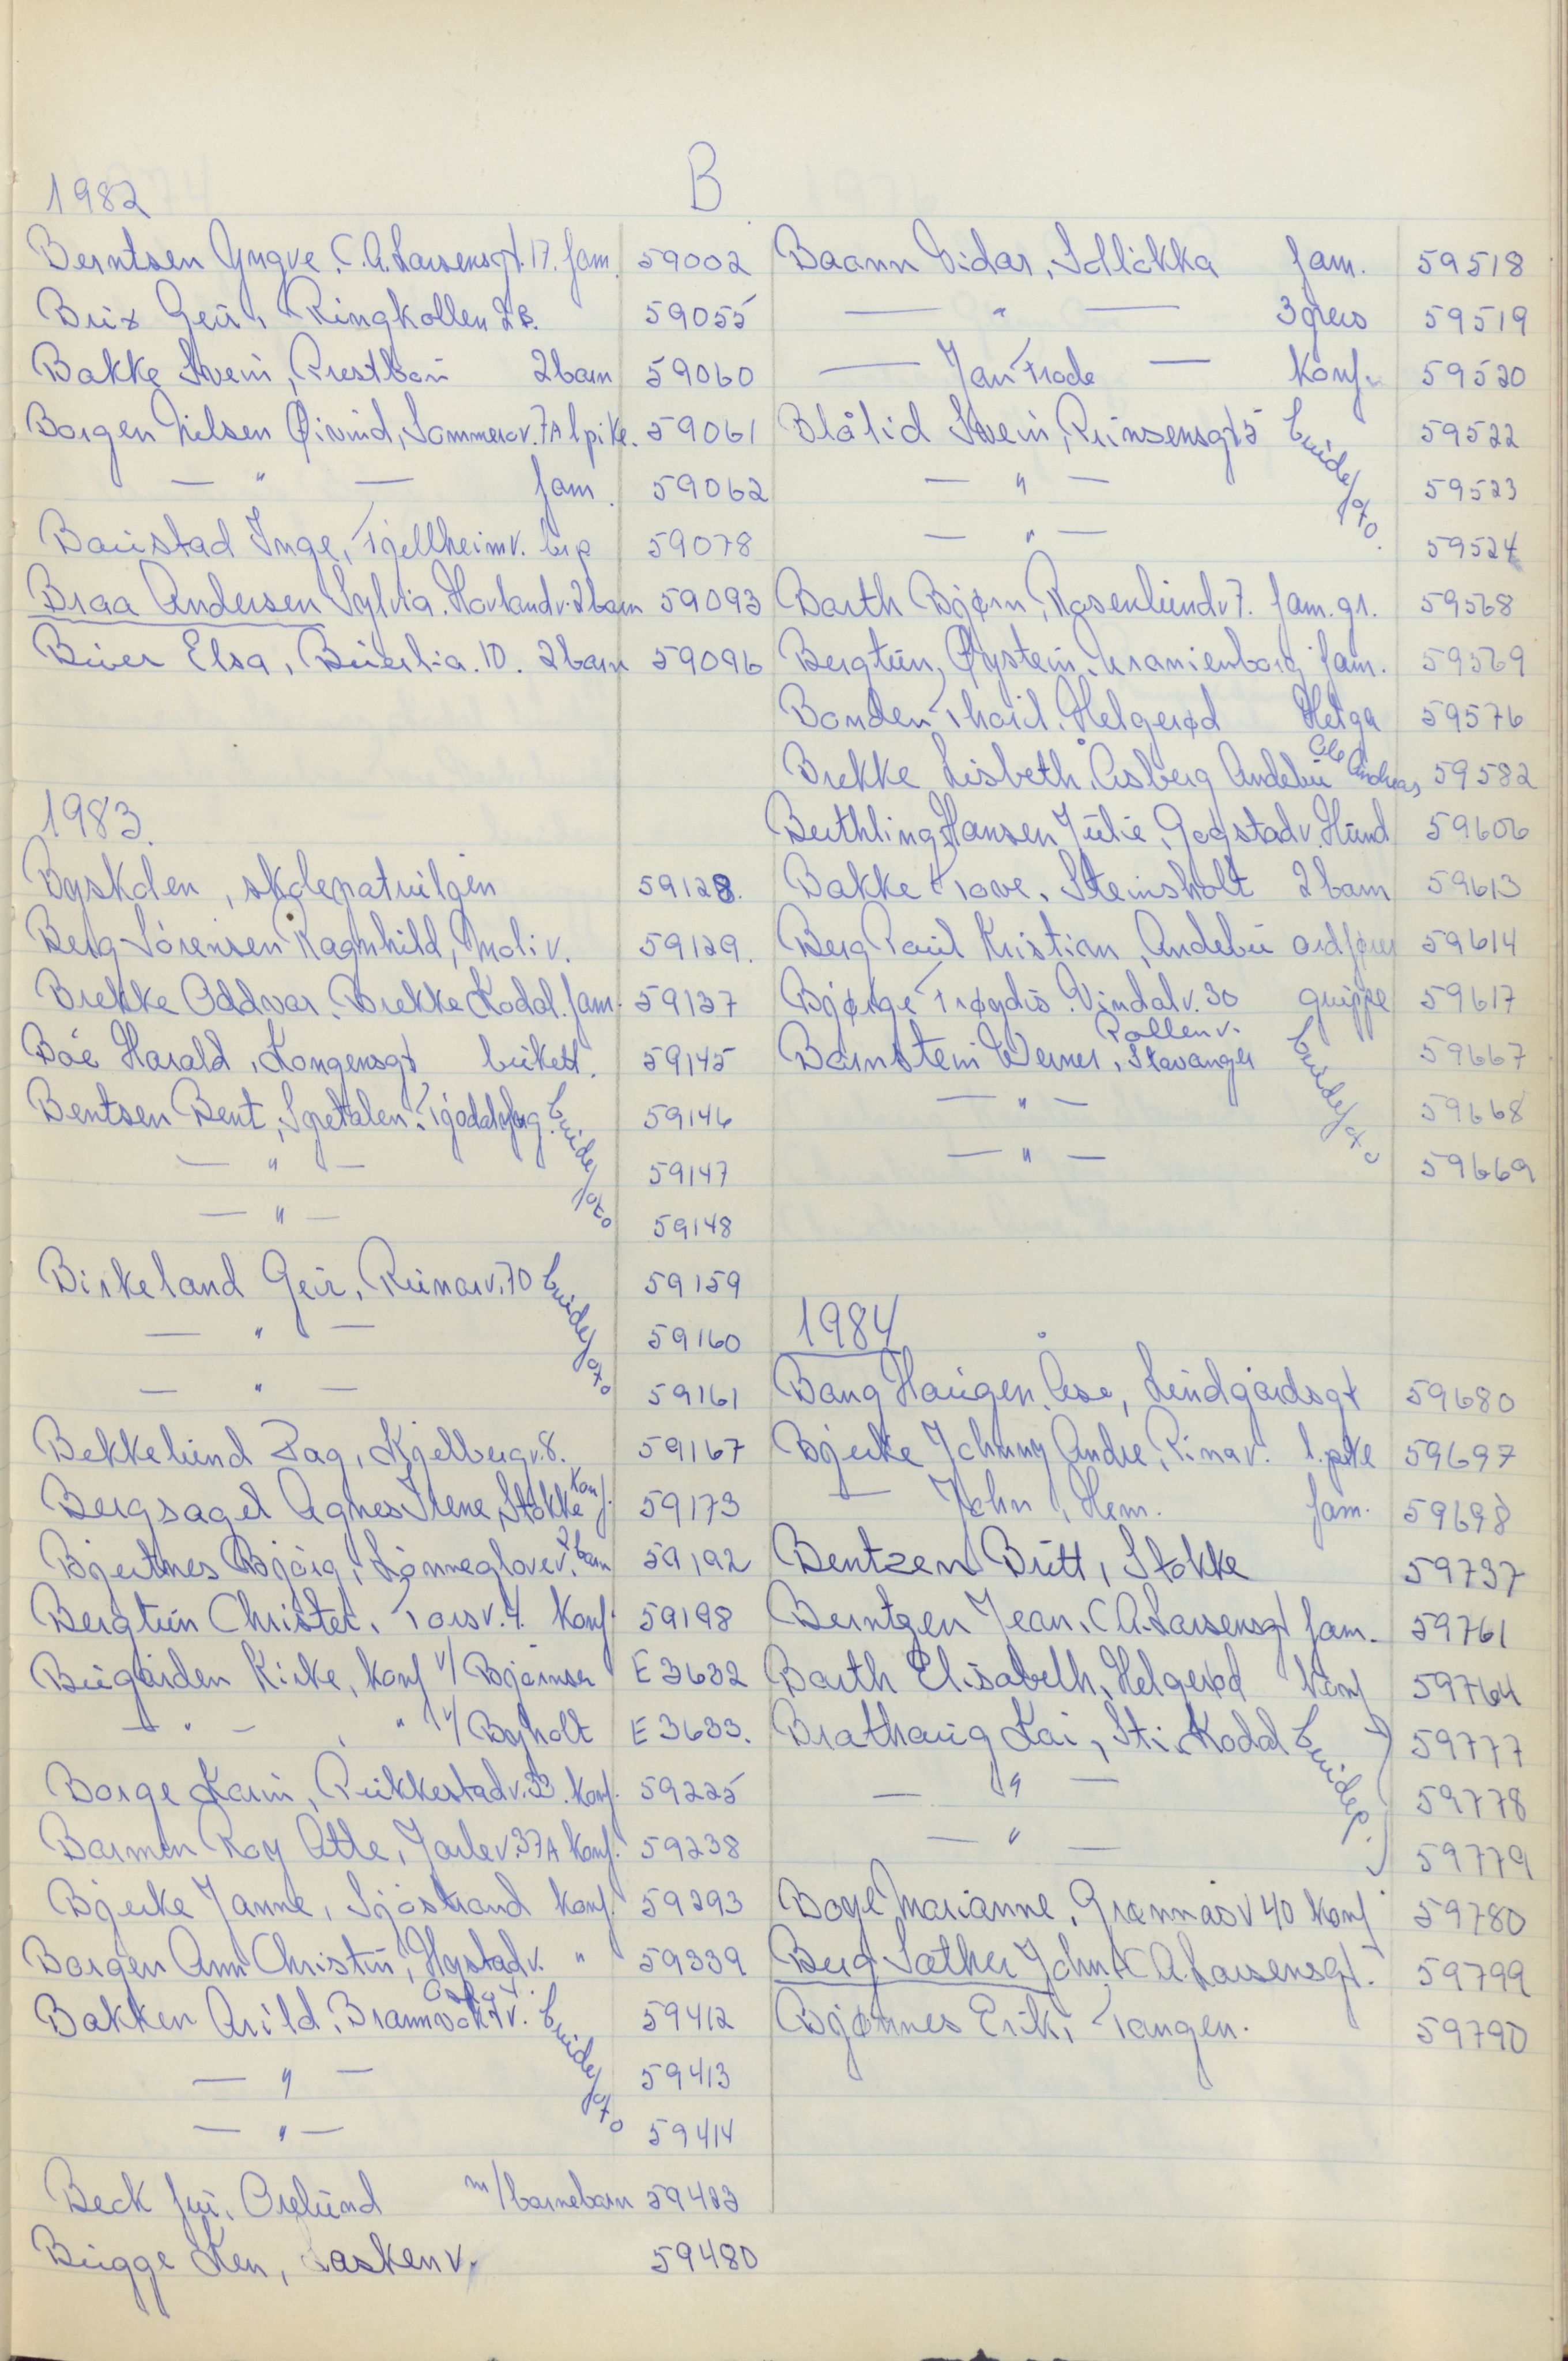 B
1982
Berntsen Yngve, C.A. Larsensgt. 17. fam. 59002
Brix Geir, Ringkollen 2B. 59055
Bakke Svein, Prestbøn 2 barn 59060
Borgen Nilsen Øivind, Sommerov. 7A l pike. 59061
— " — fam. 59062
Baustad Inge, Fjellheimv. brp 59078
Braa Andersen Sylvia. Havlandv. 2 barn 59093
Buer Elsa, Buerlia. 10. 2 barn 59096
1983.
Byskolen, skolepatruljen 59128.
Berg-Sörensen Ragnhild, Moliv. 59129.
Brekke Oddvar. Brekke Kodal. fam. 59137
Böe Harald, Kongensgt bukett. 59145
Bentsen Bent, Gretalen. Tjodalyng. brudefoto 59146
— " — 59147
— " — 59148
Birkeland Geir, Runarv. 70 brudefoto 59159
— " — 59160
— " — 59161
Bekkelund Dag, Kjelbergv. 8. 59167
Bergsagel Agnes Irene, Stokke konf. 59173
Bjertnes Björg, Lønneglovev. 2 barn 59192
Bergtun Christer, Torsv. 4. konf. 59198
Bugården Kirke, konf v/ Bjørnser E 3632
— " — , " v/ Byholt E 3633.
Borge Karin, Pukkestadv. 33. konf. 59225
Barmen Roy Atle, Jarlev. 37A konf. 59238
Bjerke Janne, Sjöstrand konf. 59293
Borgen Ann Christin, Hystadv. " 59339
Bakken Arild, brudefoto 59412
— " — 59413
— " — 59414
Beck fru. Orelund m/barnebarn 59423
Bugge Ken, Laskenv. 59480
Baann Vidar, Solløkka fam. 59518
— " — 3 grers 59519
— Jan Frode — konf. 59520
Blålid Svein, Prinsensgt 5 brudefoto. 59522
— " — 59523
— " — 59524
Barth Bjørn, Rosenlundv 7. fam. gr. 59568
Bergtun, Øystein, Uranienborg fam. 59569
Bonden Thoril. Helgerød Helga 59576
Brekke Lisbeth, Åsberg Andebu Ole Andreas 59582
Buthling Hansen Julie, Gogstadv. Hund 59606
Bakke Tove, Steinsholt 2 barn 59613
Berg Paul Kristian, Andebu ordfører 59614
Bjørge Frøydis. Vindalv. 30 gruppe 59617
Barnstein Werner, Pollenv. Stavanger brudefoto 59667
— " — 59668
— " — 59669
1984
Bang Haugen. Åse, Lindgårdsgt 59680
Bjerke Johnny Andre, Rinav. l. pike 59697
— John, Hem. fam. 59698
Bentzen Britt, Stokke 59737
Berntzen Jean, C A. Larsensgt fam. 59761
Barth Elisabeth, Helgerød konf 59764
Brathaug Kai, Sti. Kodal brudep. 59777
— " — 59778
— " — 59779
Boye Marianne, Grønnåsv 40 konf 59780
Berg Sather John, C A. Larsensgt. 59799
Bjønnes Erik, Tangen. 59790